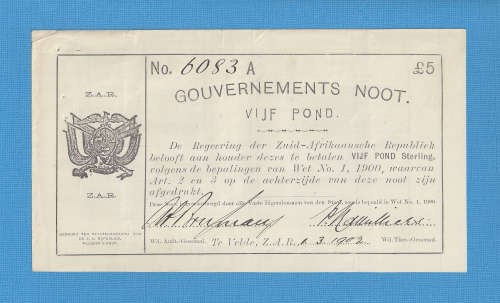 No. 6083 A £5
GOUVERNEMENTS NOOT.
VIJF POND.
Z.A.R.
De Regeering der Zuid-Afrikaansche Republiek
belooft aan houder dezes te betalen VIJF POND Sterling,
volgens de bepalingen van Wet No. 1, 1900, waarvan
Art. 2 en 3 op de achterzijde van deze noot zijn
afgedrukt.
Z.A.R.
Deze Noot door Vaste Eigendommen van den Staat, zooals bepaald in Wet No. 1, 1900.
Wd. Audt.-Generaal. Te Velde, Z.A.R., 1.3.1902. Wd. Thes.-Generaal.